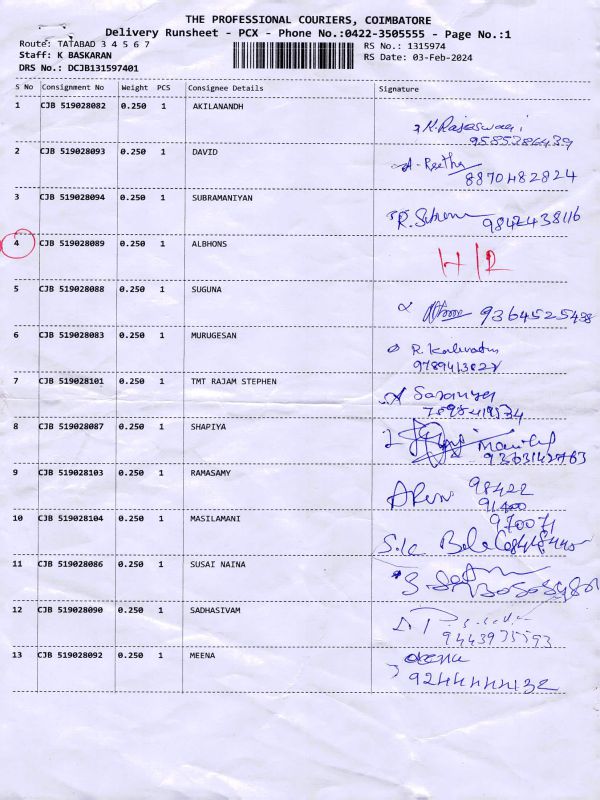 THE PROFESSIONAL COURIERS, COIMBATORE
Delivery Runsheet - PCX - Phone No.:0422-3505555 - Page No.:1
Route: TATABAD 3 4 5 6 7 RS No.: 1315974
Staff: K BASKARAN RS Date: 03-Feb-2024
DRS No.: DCJB131597401
S No Consignment No Weight PCS Consignee Details Signature
1 CJB 519028082 0.250 1 AKILANANDH
K. Rajeswari
9585386439
2 CJB 519028093 0.250 1 DAVID
A. Reetha
8870482824
3 CJB 519028094 0.250 1 SUBRAMANIYAN
9842438116
4 CJB 519028089 0.250 1 ALBHONS
H/R
5 CJB 519028088 0.250 1 SUGUNA
9364525438
6 CJB 519028083 0.250 1 MURUGESAN
7 CJB 519028101 0.250 1 TMT RAJAM STEPHEN
Saranya
8 CJB 519028087 0.250 1 SHAPIYA
9363142763
9 CJB 519028103 0.250 1 RAMASAMY
Arun 98422
91400
10 CJB 519028104 0.250 1 MASILAMANI
970071
11 CJB 519028086 0.250 1 SUSAI NAINA
12 CJB 519028090 0.250 1 SADHASIVAM
9443975593
13 CJB 519028092 0.250 1 MEENA
9244444132